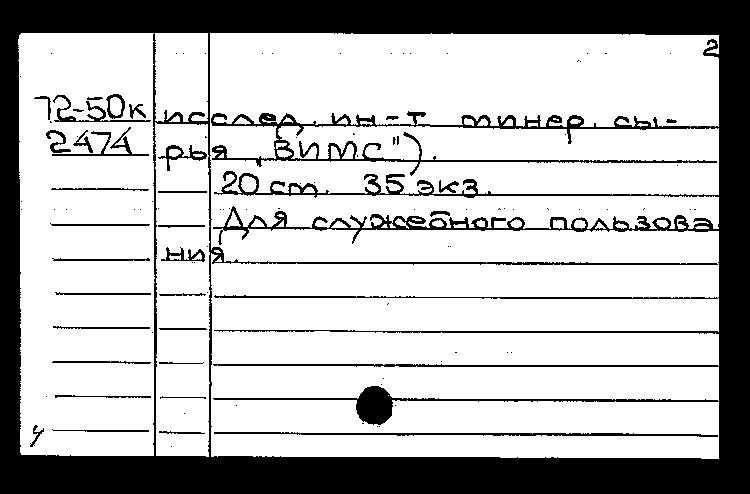 2
72-50к исслед. ин-т минер. сы-
2474 рья „ВИМС").
20 ст. 35 экз.
Для служебного пользова
ния.
у